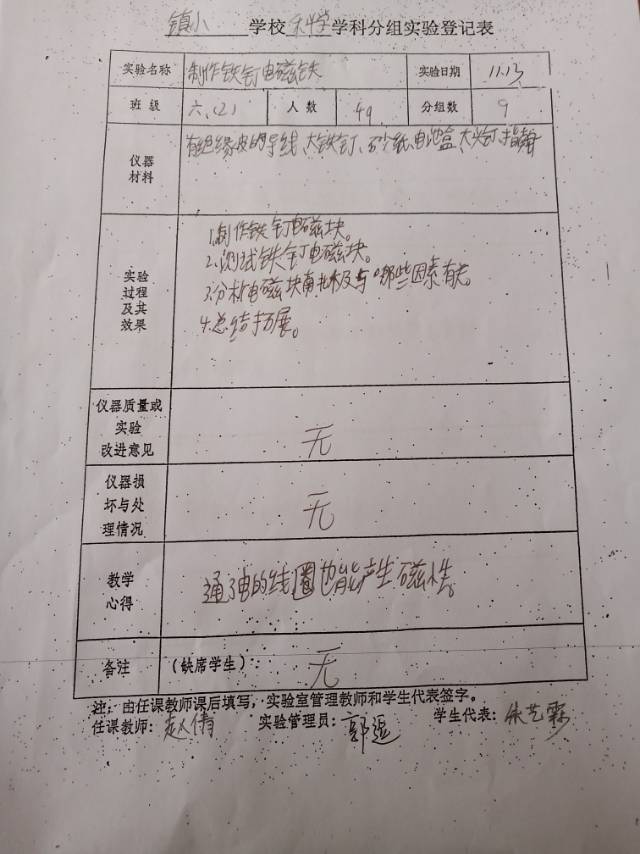 镇小 学校 科学 学科分组实验登记表
实验名称 制作铁钉电磁铁 实验日期 11.13
班级 六.(2) 人数 49 分组数 9
仪器材料 有绝缘皮的导线、大铁钉、砂纸、电池盒、大头钉、指南
实验过程及其效果
1.制作铁钉电磁块。
2.测试铁钉电磁块。
3.分析电磁块南北极与哪些因素有关。
4.总结拓展。
仪器质量或实验改进意见 无
仪器损坏与处理情况 无
教学心得 通电的线圈也能产生磁性。
备注 (缺席学生): 无
注: 由任课教师课后填写,实验室管理教师和学生代表签字。
任课教师: 赵倩 实验管理员: 郭 学生代表: 朱艺霖